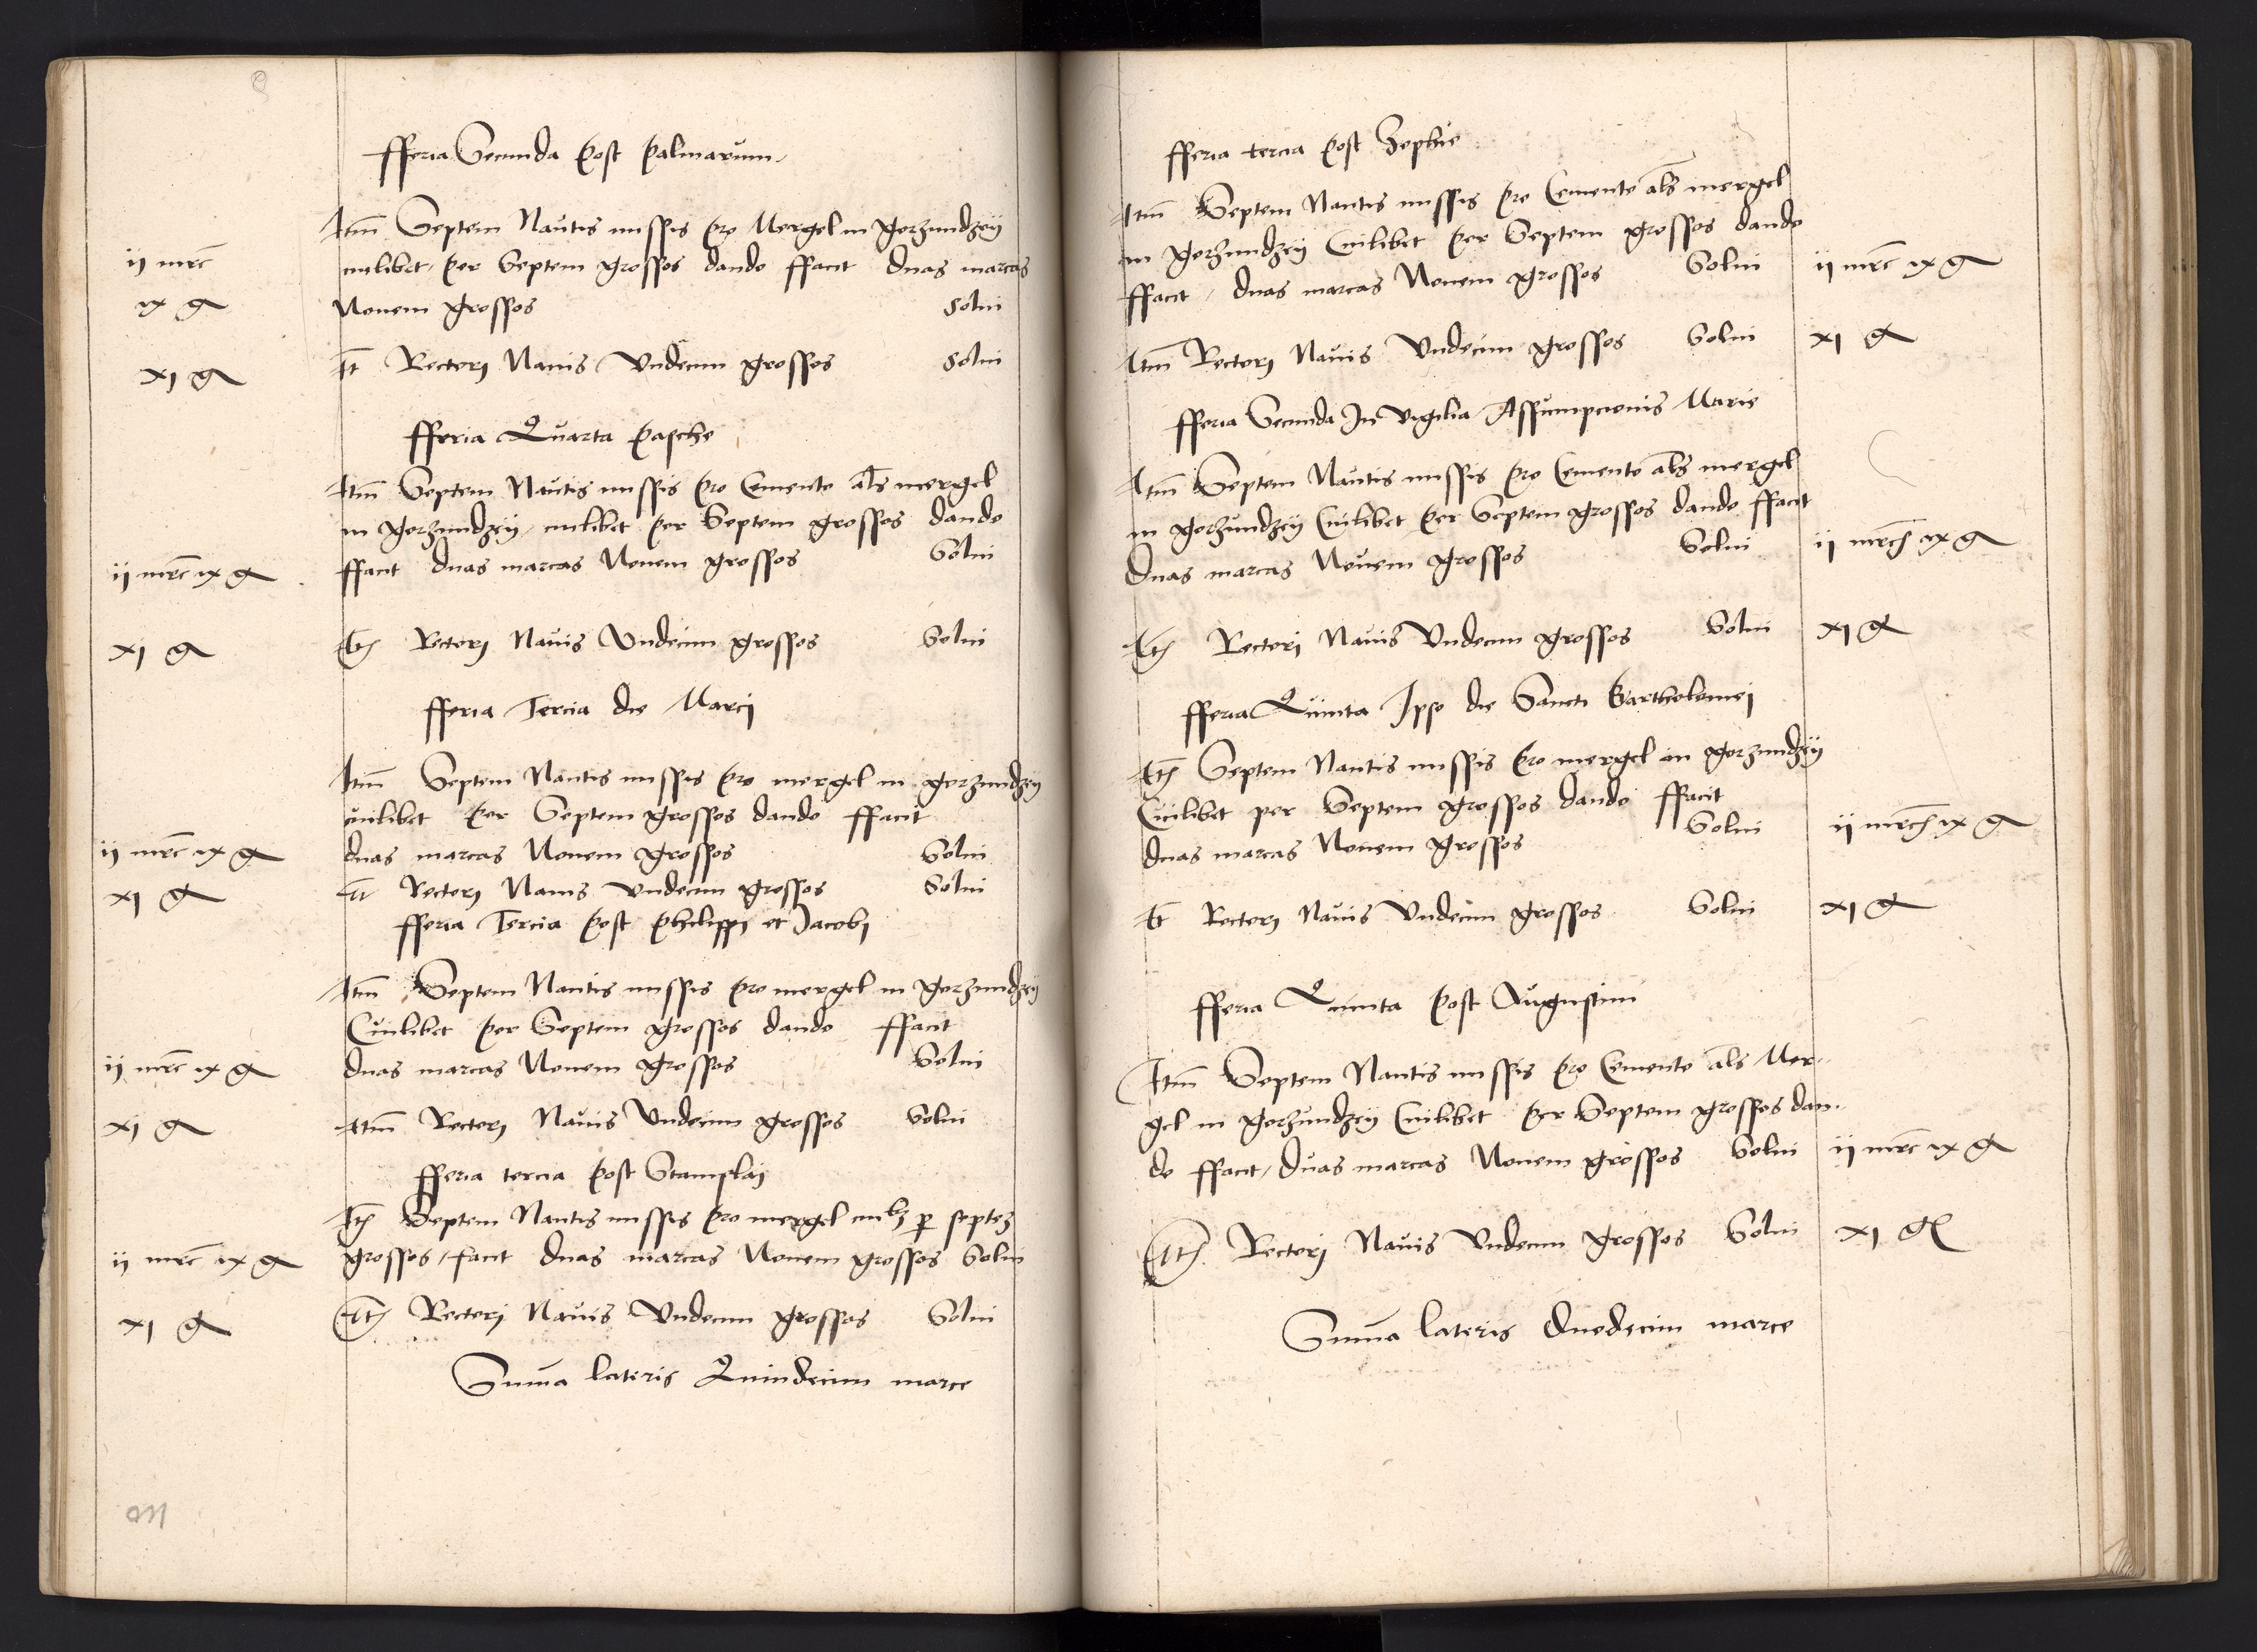 fferia Secunda post palmarum
Itm̄ Septem Nautis missis pro Mergel in gorzundzey
ij mrc̄ cuilibet per Septem grossos dando ffacit duas marcas
ix g Nouem grossos Solui
xj g It̄ Rectorj Nauis Vndecim grossos Solui
fferia Quarta pasche
Itm̄ Septem Nautis missis pro Cemento al̄s mergel
in gorzundzeÿ cuilibet per Septem grossos dando
ij mrc̄ ix g ffacit duas marcas Nouem grossos Solui
xj g It̄ Rectorj Nauis Vndecim grossos Solui
fferia Tercia die Marcj
Itm̄ Septem Nautis missis pro mergel in gorzundzey
cuilibet per Septem grossos dando ffacit
ij mrc̄ ix g duas marcas Nouem grossos Solui
xj g It̄ Rectorj Nauis vndecim grossos Solui
fferia Tercia post philippj et Jacobj
Itm̄ Septem Nautis missis pro mergel in gorzundzey
Cuilibet per Septem grossos dando ffacit
ij mrc̄ ix g duas marcas Nouem grossos Solui
xj g Itm̄ Rectorj Nauis Vndecim grossos Solui
fferia tercia post Stanislaj
It̄ Septem Nautis missis pro mergel cuilbʒ ꝑ septeʒ
ij mrc̄ ix g grossos facit duas marcas Nouem grossos Solui
xj g It̄ Rectorj Nauis Vndecim grossos Solui
Sum̄a lateris Quindecim marce
fferia tercia post Zophie
Itm̄ Septem Nautis missis pro Cemento al̄s mergel
in gorzundzeÿ Cuilibet per Septem grossos dando
ffacit duas marcas Nouem grossos Solui ij mrc̄ ix g
Itm̄ Rectorj Nauis Vndecim grossos Solui xj g
fferia Secunda In vigilia Assumpcionis Marie
Itm̄ Septem Nautis missis pro Cemento al̄s mergel
in gorzundzeÿ Cuilibet per Septem grossos dando ffacit
Duas marcas Nouem grossos Solui ij mrc̄ ix g
It̄ Rectori Nauis Vndecim grossos Solui xj g
fferia Quinta Ipso die Sancti Bartholomej
It̄ Septem Nautis missis pro mergel in gorzundzÿ
Cuilibet per Septem grossos dando ffacit
duas marcas Nouem grossos Solui ij mrc̄ ix g
It̄ Rectorj Nauis Vndecim grossos Solui xj g
fferia Quinta post Augustini
Itm̄ Septem Nautis missis pro Cemento al̄s Mer-
gel in gorzundzeÿ Cuilibet per Septem grossos dan-
do ffacit duas marcas Nouem grossos Solui ij mrc̄ ix g
It̄ Rectorj Nauis Vndecim grossos Solui xj g
Sum̄a lateris Duodecim marce